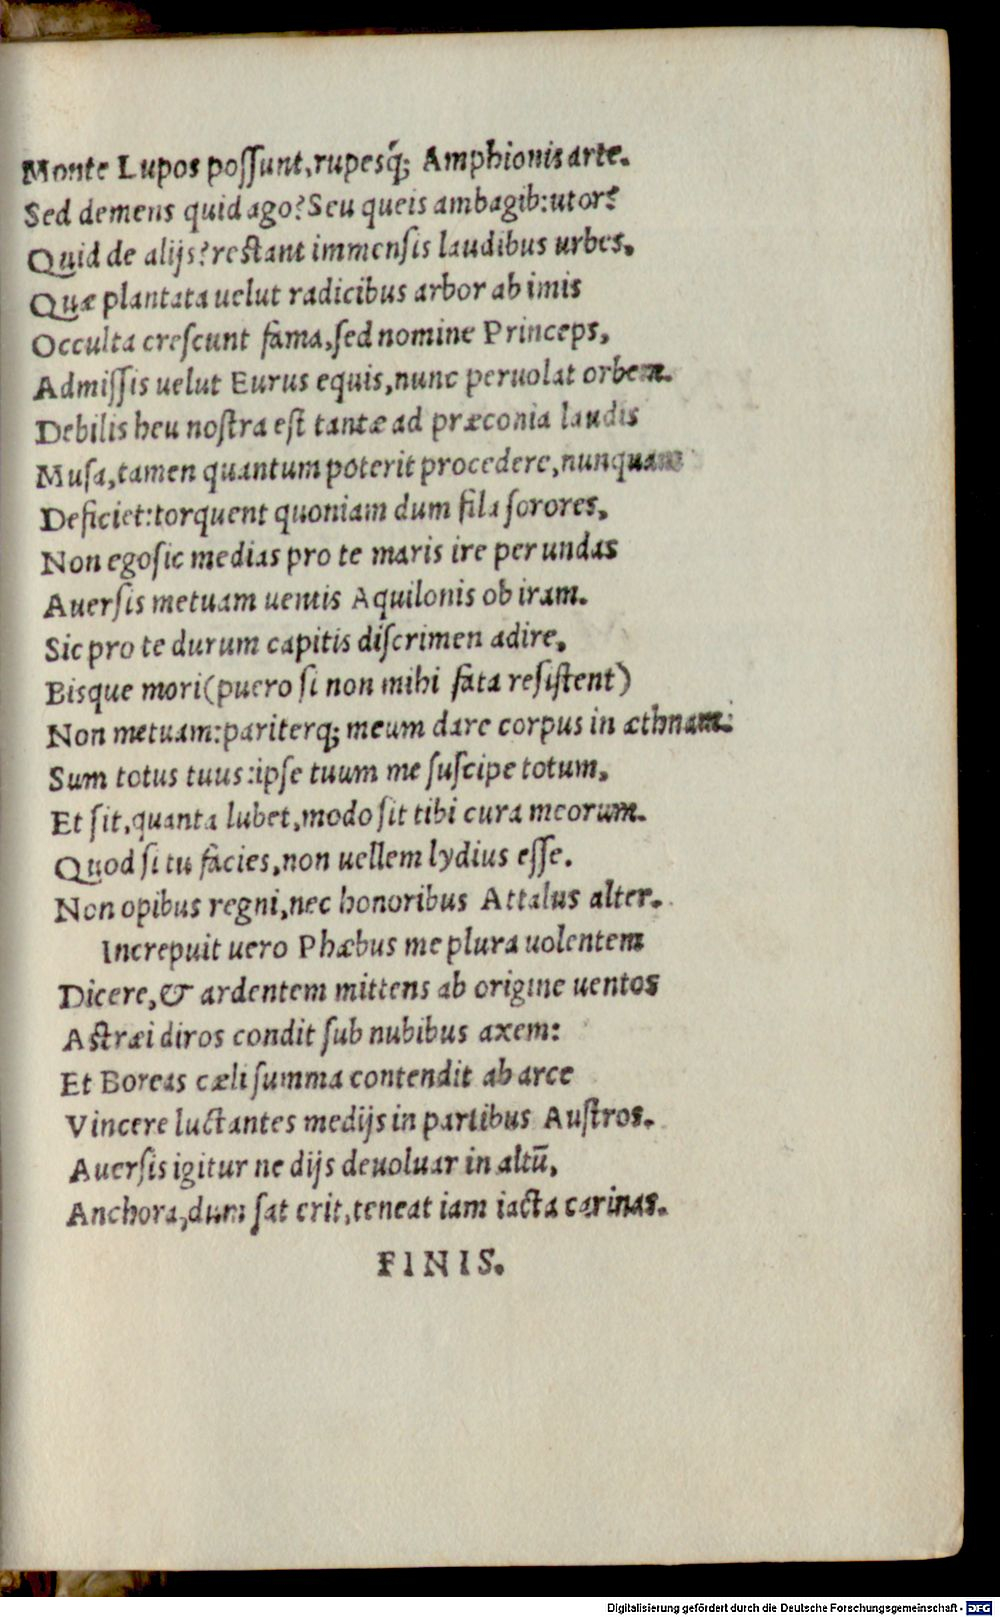 Monte Lupos poſſunt, rupesq́; Amphionis arte.
Sed demens quid ago? Seu queis ambagib: utor?
Quid de alijs? restant immenſis laudibus urbes.
Quæ plantata uelut radicibus arbor ab imis
Occulta creſcunt fama, ſed nomine Princeps,
Admiſſis uelut Eurus equis, nunc peruolat orbem.
Debilis heu noſtra eſt tantæ ad præconia laudis
Muſa, tamen quantum poterit procedere, nunquam
Deficiet: torquent quoniam dum fila ſorores,
Non ego ſic medias pro te maris ire per undas
Auerſis metuam uentis Aquilonis ob iram.
Sic pro te durum capitis diſcrimen adire,
Bisque mori (puero ſi non mihi fata reſiſtent)
Non metuam: pariterq; meum dare corpus in æthnam:
Sum totus tuus: ipſe tuum me ſuſcipe totum,
Et ſit, quanta lubet, modo ſit tibi cura meorum.
Quod ſi tu facies, non uellem lydius eſſe.
Non opibus regni, nec honoribus Attalus alter.
Increpuit uero Phæbus me plura uolentem
Dicere, & ardentem mittens ab origine uentos
Astræi diros condit ſub nubibus axem:
Et Boreas cæli ſumma contendit ab arce
Vincere luctantes medijs in partibus Auſtros.
Auerſis igitur ne dijs deuoluar in altū,
Anchora, dum ſat erit, teneat iam iacta carinas.
FINIS.
Digitalisierung gefördert durch die Deutsche Forschungsgemeinschaft - DFG